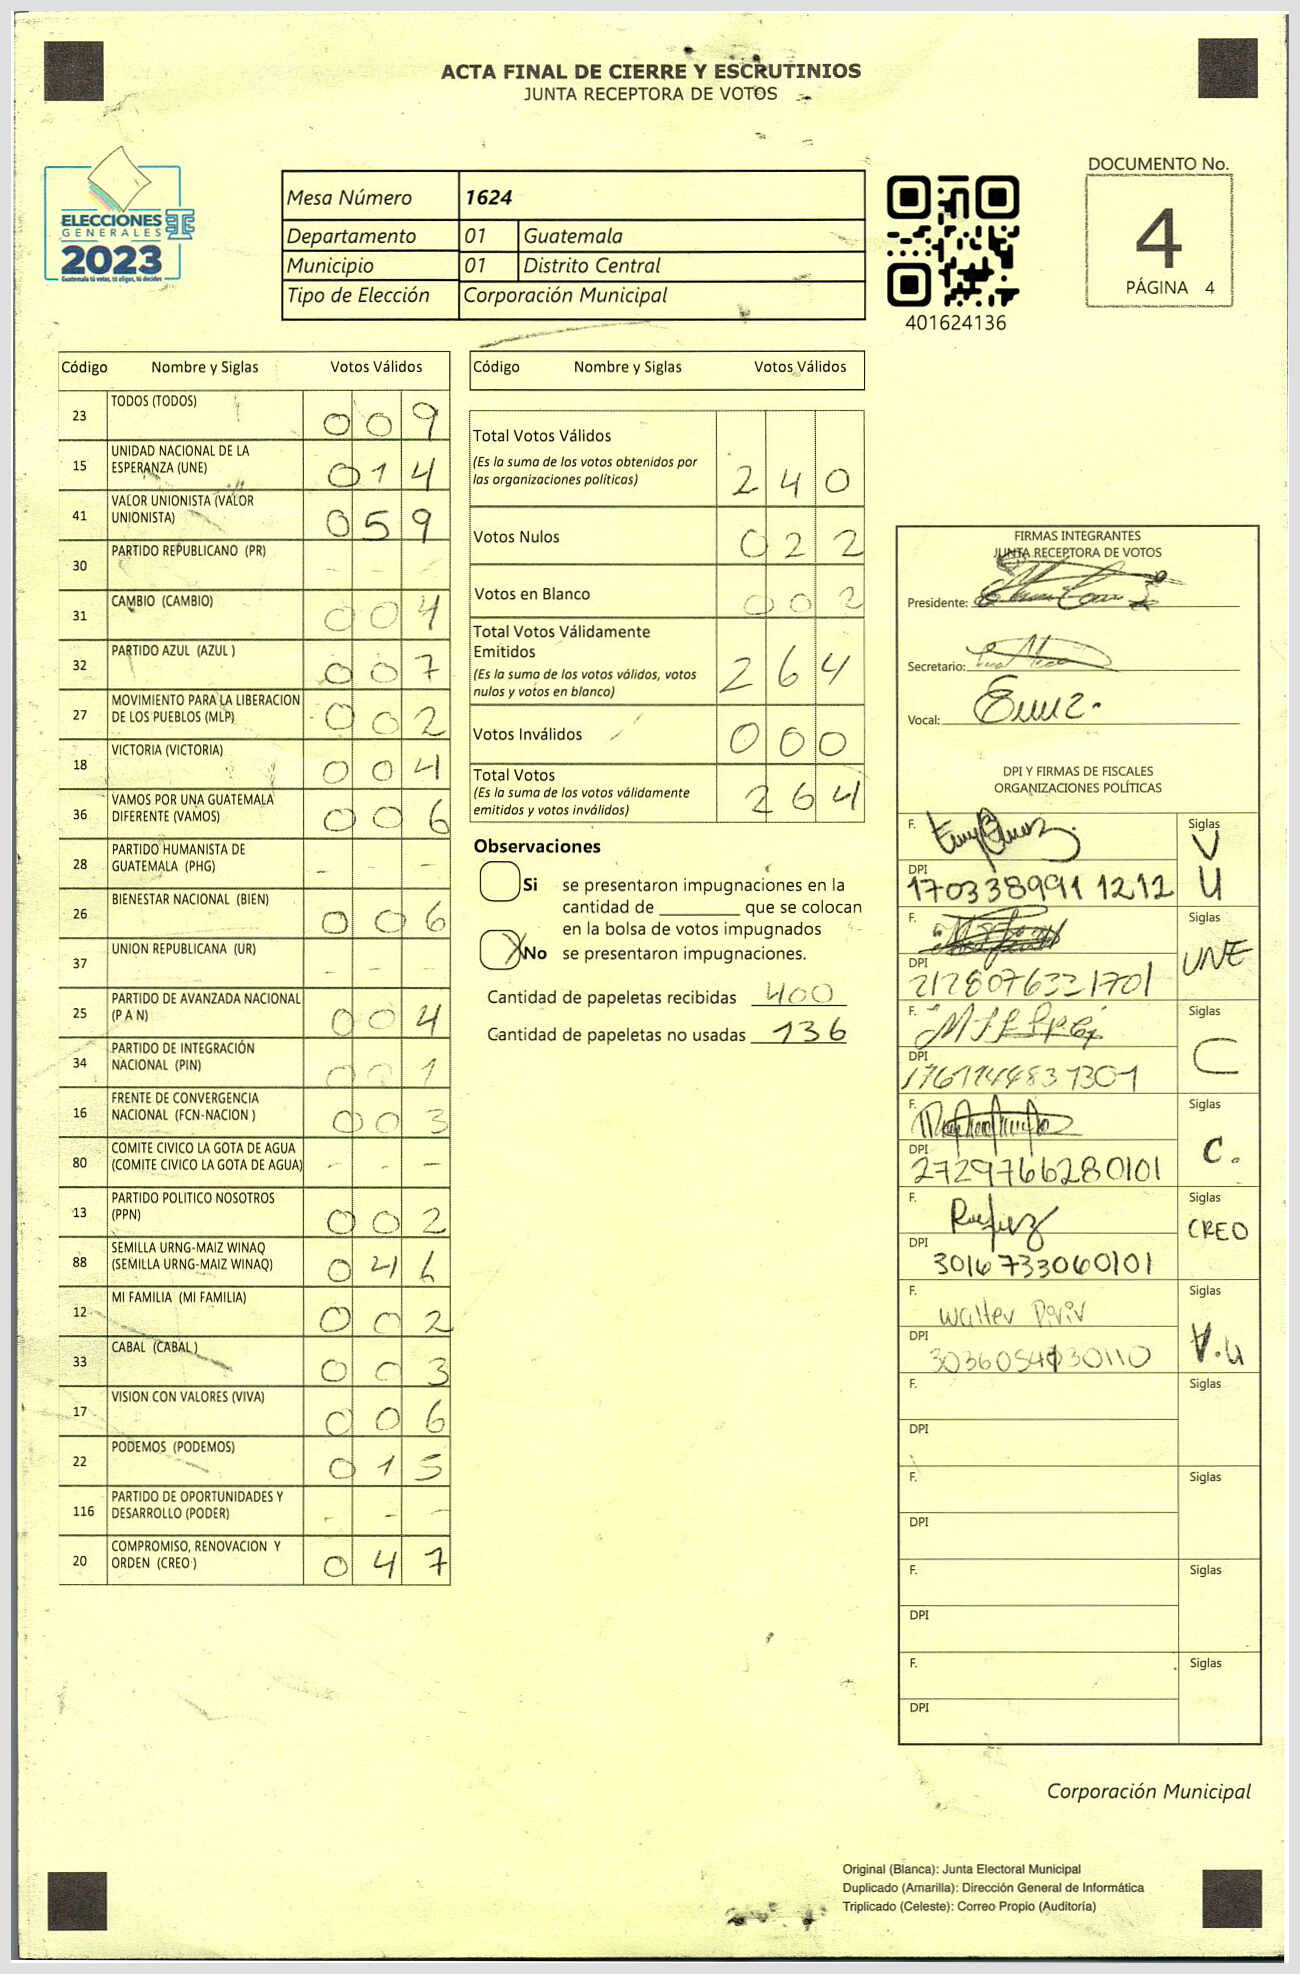 ACTA FINAL DE CIERRE Y ESCRUTINIOS
JUNTA RECEPTORA DE VOTOS
ELECCIONES
GENERALES
2023
Guatemala tú votas, tú eliges, tú decides
Mesa Número 1624
Departamento 01 Guatemala
Municipio 01 Distrito Central
Tipo de Elección Corporación Municipal
401624136
DOCUMENTO No.
4
PÁGINA 4
Código Nombre y Siglas Votos Válidos
23 TODOS (TODOS) 0 0 9
15 UNIDAD NACIONAL DE LA
ESPERANZA (UNE) 0 1 4
41 VALOR UNIONISTA (VALOR
UNIONISTA) 0 5 9
30 PARTIDO REPUBLICANO (PR) - - -
31 CAMBIO (CAMBIO) 0 0 4
32 PARTIDO AZUL (AZUL ) 0 0 7
27 MOVIMIENTO PARA LA LIBERACION
DE LOS PUEBLOS (MLP) 0 0 2
18 VICTORIA (VICTORIA) 0 0 4
36 VAMOS POR UNA GUATEMALA
DIFERENTE (VAMOS) 0 0 6
28 PARTIDO HUMANISTA DE
GUATEMALA (PHG) - - -
26 BIENESTAR NACIONAL (BIEN) 0 0 6
37 UNION REPUBLICANA (UR) - - -
25 PARTIDO DE AVANZADA NACIONAL
(P A N) 0 0 4
34 PARTIDO DE INTEGRACIÓN
NACIONAL (PIN) 0 0 1
16 FRENTE DE CONVERGENCIA
NACIONAL (FCN-NACION ) 0 0 3
80 COMITE CIVICO LA GOTA DE AGUA
(COMITE CIVICO LA GOTA DE AGUA) - - -
13 PARTIDO POLITICO NOSOTROS
(PPN) 0 0 2
88 SEMILLA URNG-MAIZ WINAQ
(SEMILLA URNG-MAIZ WINAQ) 0 4 6
12 MI FAMILIA (MI FAMILIA) 0 0 2
33 CABAL (CABAL ) 0 0 3
17 VISION CON VALORES (VIVA) 0 0 6
22 PODEMOS (PODEMOS) 0 1 5
116 PARTIDO DE OPORTUNIDADES Y
DESARROLLO (PODER) - - -
20 COMPROMISO, RENOVACION Y
ORDEN (CREO ) 0 4 7
Código Nombre y Siglas Votos Válidos
Total Votos Válidos
(Es la suma de los votos obtenidos por
las organizaciones políticas) 2 4 0
Votos Nulos 0 2 2
Votos en Blanco 0 0 2
Total Votos Válidamente
Emitidos
(Es la suma de los votos válidos, votos
nulos y votos en blanco) 2 6 4
Votos Inválidos 0 0 0
Total Votos
(Es la suma de los votos válidamente
emitidos y votos inválidos) 2 6 4
Observaciones
Si se presentaron impugnaciones en la
cantidad de ________ que se colocan
en la bolsa de votos impugnados
X No se presentaron impugnaciones.
Cantidad de papeletas recibidas 400
Cantidad de papeletas no usadas 136
FIRMAS INTEGRANTES
JUNTA RECEPTORA DE VOTOS
Presidente:
Secretario:
Vocal:
DPI Y FIRMAS DE FISCALES
ORGANIZACIONES POLÍTICAS
F. Siglas
V
DPI
170338991 1212 U
F. Siglas
UNE
DPI
2128076321701
F. Siglas
C
DPI
F. Siglas
C.
DPI
2729766280101
F. Siglas
CREO
DPI
3016733060101
F. Walter Piriv Siglas
V.U
DPI
3036054030110
F. Siglas
DPI
F. Siglas
DPI
F. Siglas
DPI
F. Siglas
DPI
Corporación Municipal
Original (Blanca): Junta Electoral Municipal
Duplicado (Amarilla): Dirección General de Informática
Triplicado (Celeste): Correo Propio (Auditoría)